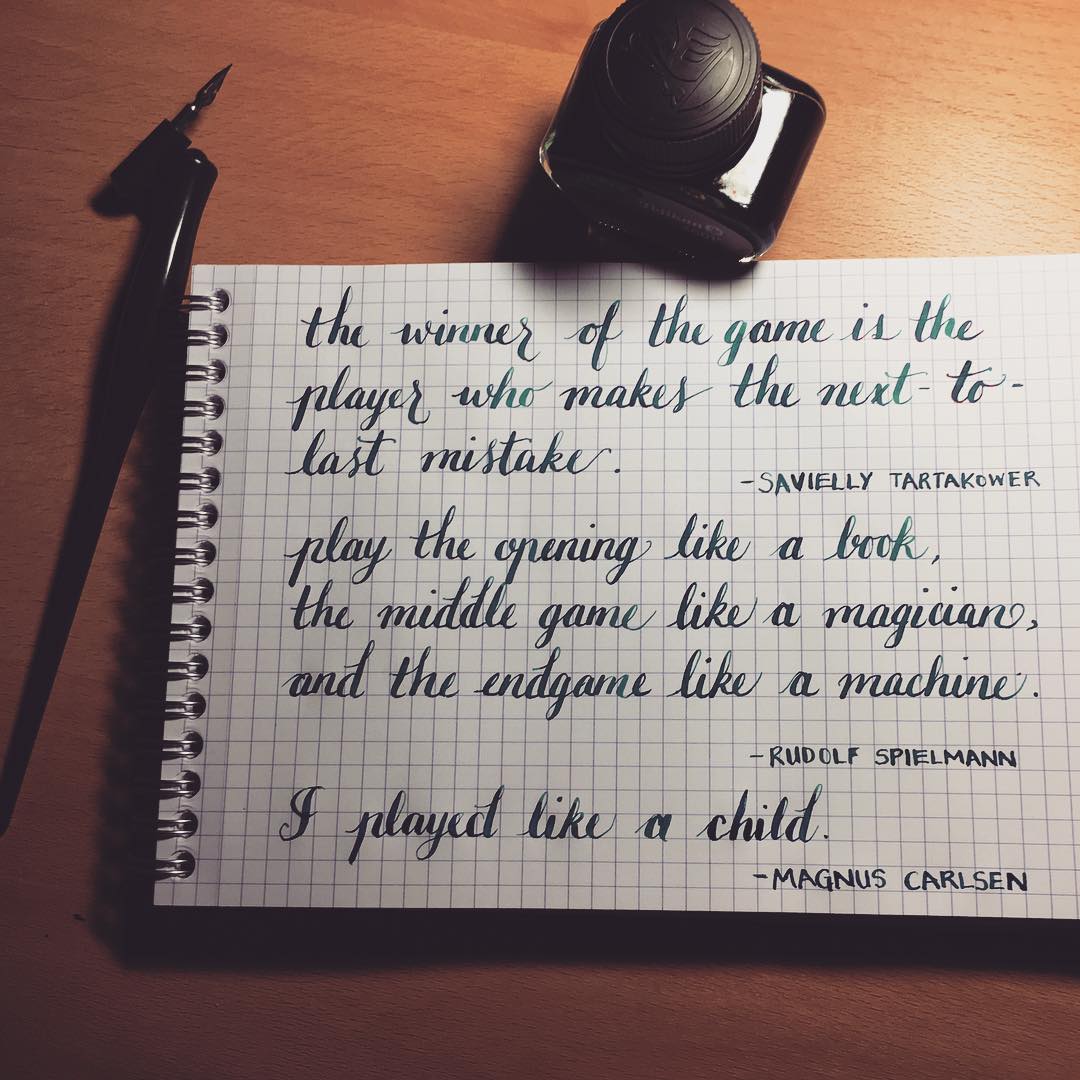 the winner of the game is the
player who makes the next-to-
last mistake.
-SAVIELLY TARTAKOWER
play the opening like a book,
the middle game like a magician,
and the endgame like a machine.
-RUDOLF SPIELMANN
I played like a child.
-MAGNUS CARLSEN